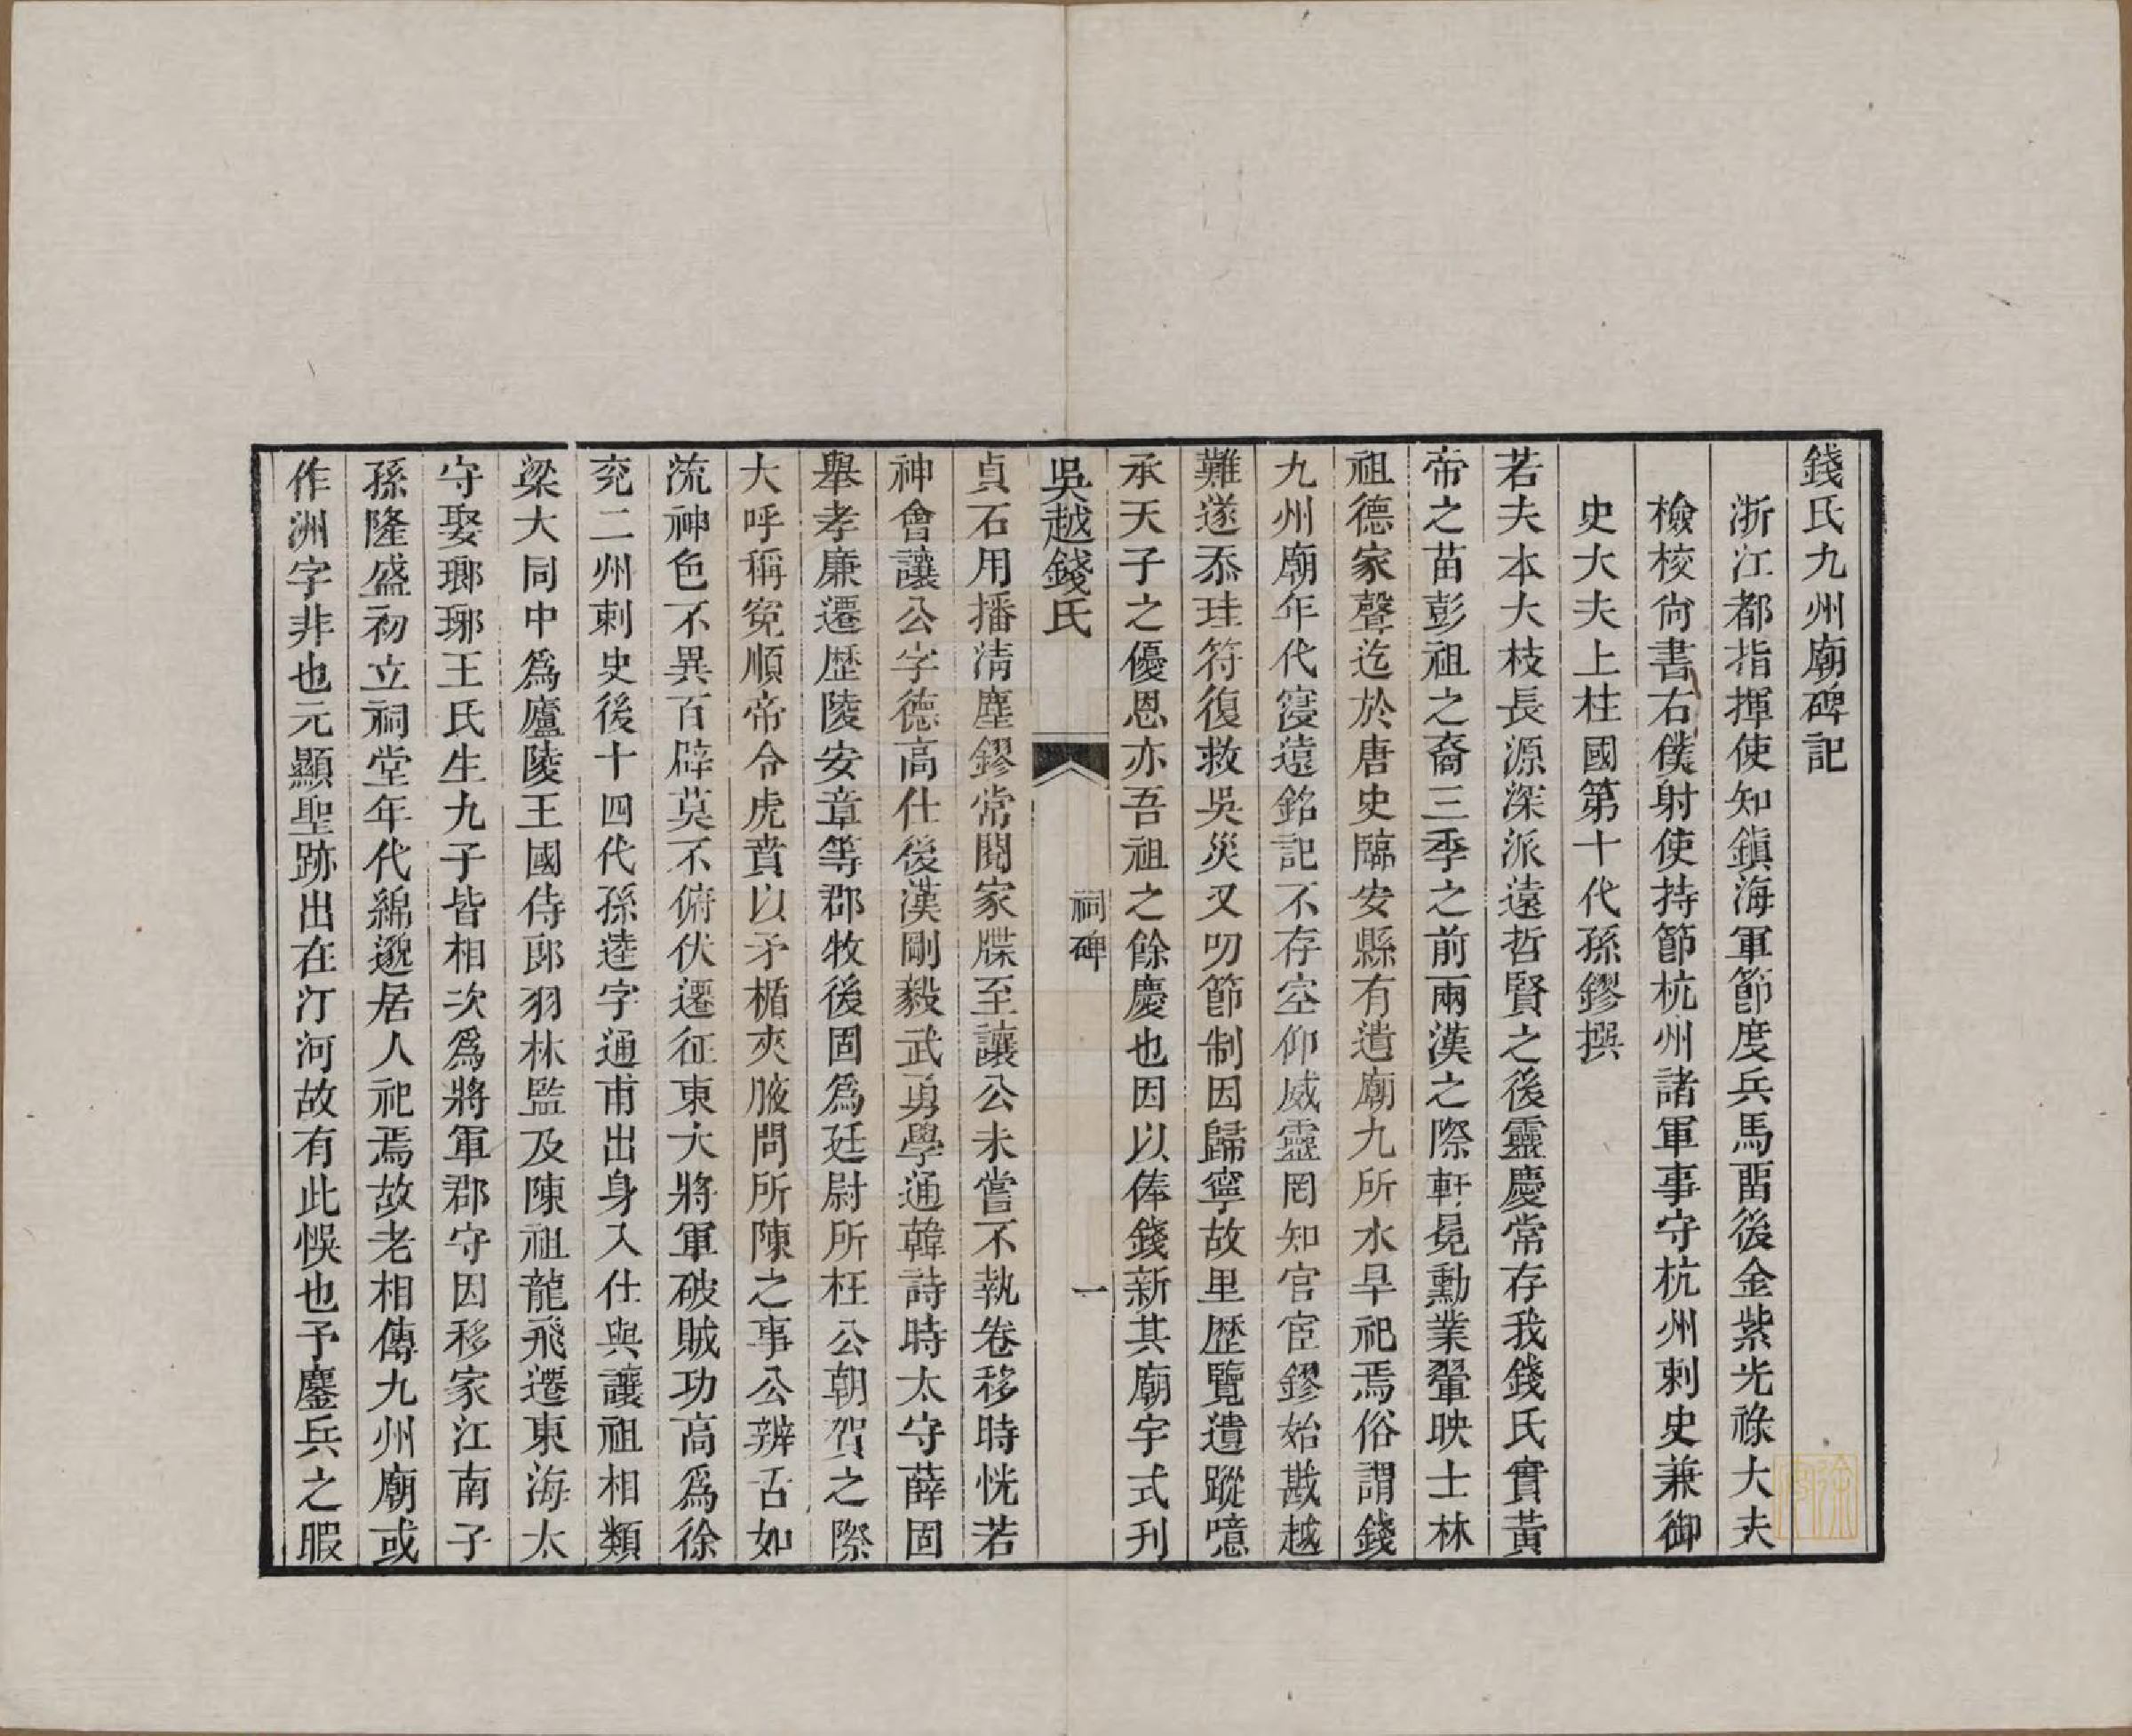 錢氏九州廟碑記
浙江都指揮使知鎮海軍節度兵馬畱後金紫光祿大夫
檢校尙書右僕射使持節杭州諸軍事守杭州刺史兼御
史大夫上柱國第十代孫鏐撰
若夫本大枝長源深派遠哲賢之後靈慶常存我錢氏實黃
帝之苗彭祖之裔三季之前兩漢之際軒冕勳業翬映士林
祖德家聲迄於唐史臨安縣有遺廟九所水旱祀焉俗謂錢
九州廟年代寖遠銘記不存空仰威靈罔知官宦鏐始戡越
難遂忝珪符復救吳災又叨節制因歸寧故里歷覽遺蹤噫
承天子之優恩亦吾祖之餘慶也因以俸錢新其廟宇式刋
吳越錢氏
祠碑
一
貞石用播淸塵鏐常閱家牒至讓公未嘗不執卷移時恍若
神會讓公字德高仕後漢剛毅武勇學通韓詩時太守薛固
舉孝廉遷歷陵安章等郡牧後固爲廷尉所枉公朝賀之際
大呼稱寃順帝令虎賁以矛楯夾腋問所陳之事公辨舌如
流神色不異百辟莫不俯伏遷征東大將軍破賊功高爲徐
兖二州刺史後十四代孫逵字通甫出身入仕與讓祖相類
梁大同中爲廬陵王國侍郞羽林監及陳祖龍飛遷東海太
守娶瑯琊王氏生九子皆相次爲將軍郡守因移家江南子
孫隆盛初立祠堂年代綿邈居人祀焉故老相傳九州廟或
作洲字非也元顯聖跡出在汀河故有此悞也予鏖兵之暇